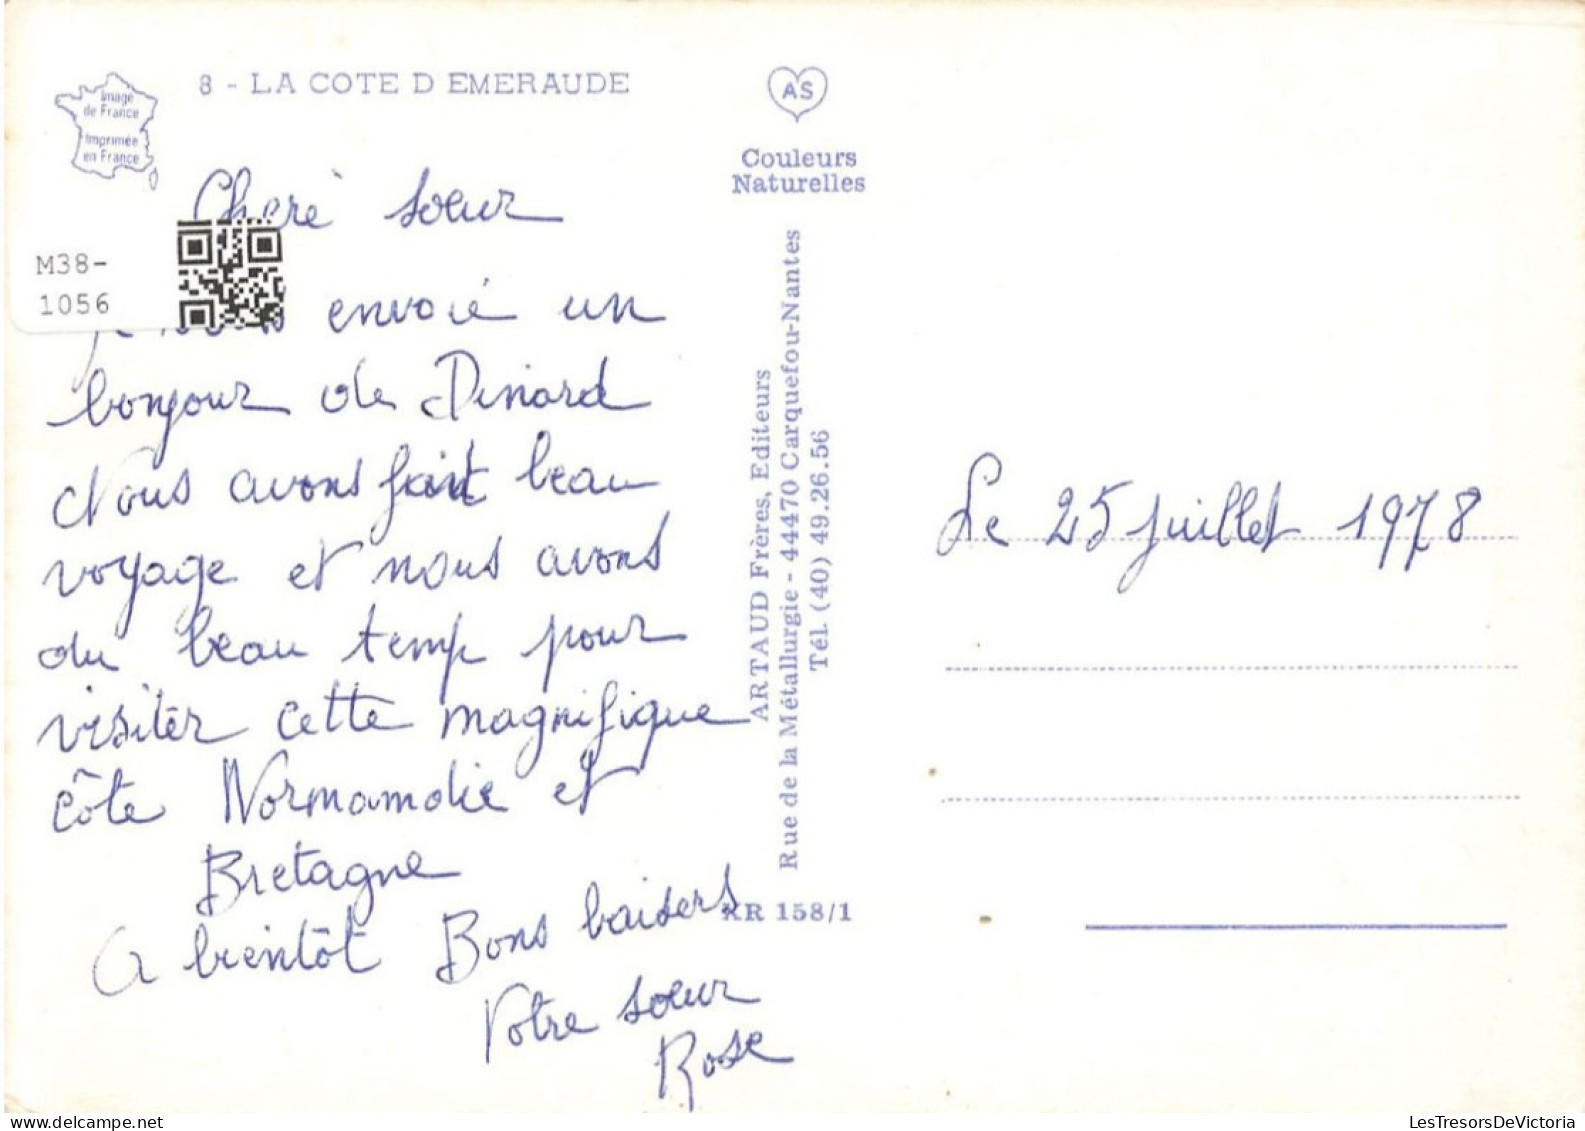 8 - LA COTE D EMERAUDE
Image
de France
Imprimée
en France
AS
Couleurs
Naturelles
M38-
1056
Cheré soeur
envoié un
bonjour de Dinard
Nous avons fait beau
voyage et nous avons
du beau temp pour
visiter cette magnifique
côte Normandie et
Bretagne
A bientôt Bons baisers
Votre soeur
Rose
ARTAUD Frères, Editeurs
Rue de la Métallurgie - 44470 Carquefou-Nantes
Tél. (40) 49.26.56
KR 158/1
Le 25 juillet 1978
LesTresorsDeVictoria
delcampe.net